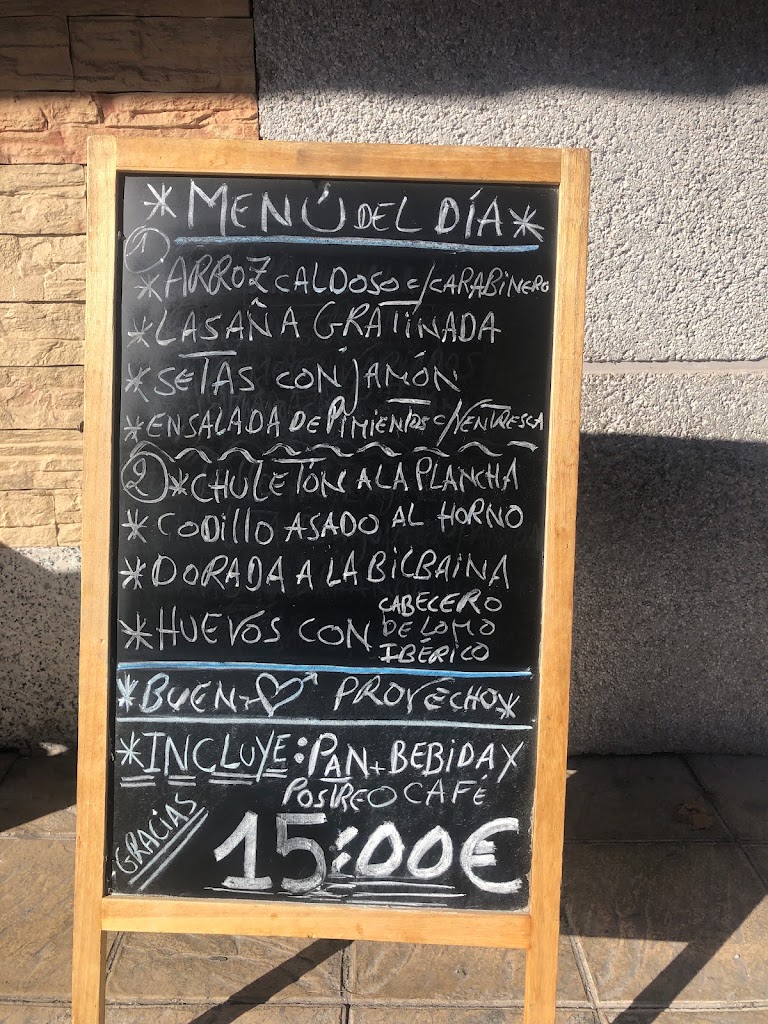 * MENÚ DEL DÍA *
1
* ARROZ CALDOSO C/CARABINERO
* LASAÑA GRATINADA
* SETAS CON JAMÓN
* ENSALADA DE PIMIENTOS C/VENTRESCA
2 * CHULETÓN A LA PLANCHA
* CODILLO ASADO AL HORNO
* DORADA A LA BILBAINA
* HUEVOS CON CABECERO
DE LOMO
IBÉRICO
* BUEN PROVECHO *
* INCLUYE: PAN + BEBIDA Y
POSTRE O CAFÉ
GRACIAS
15:00€